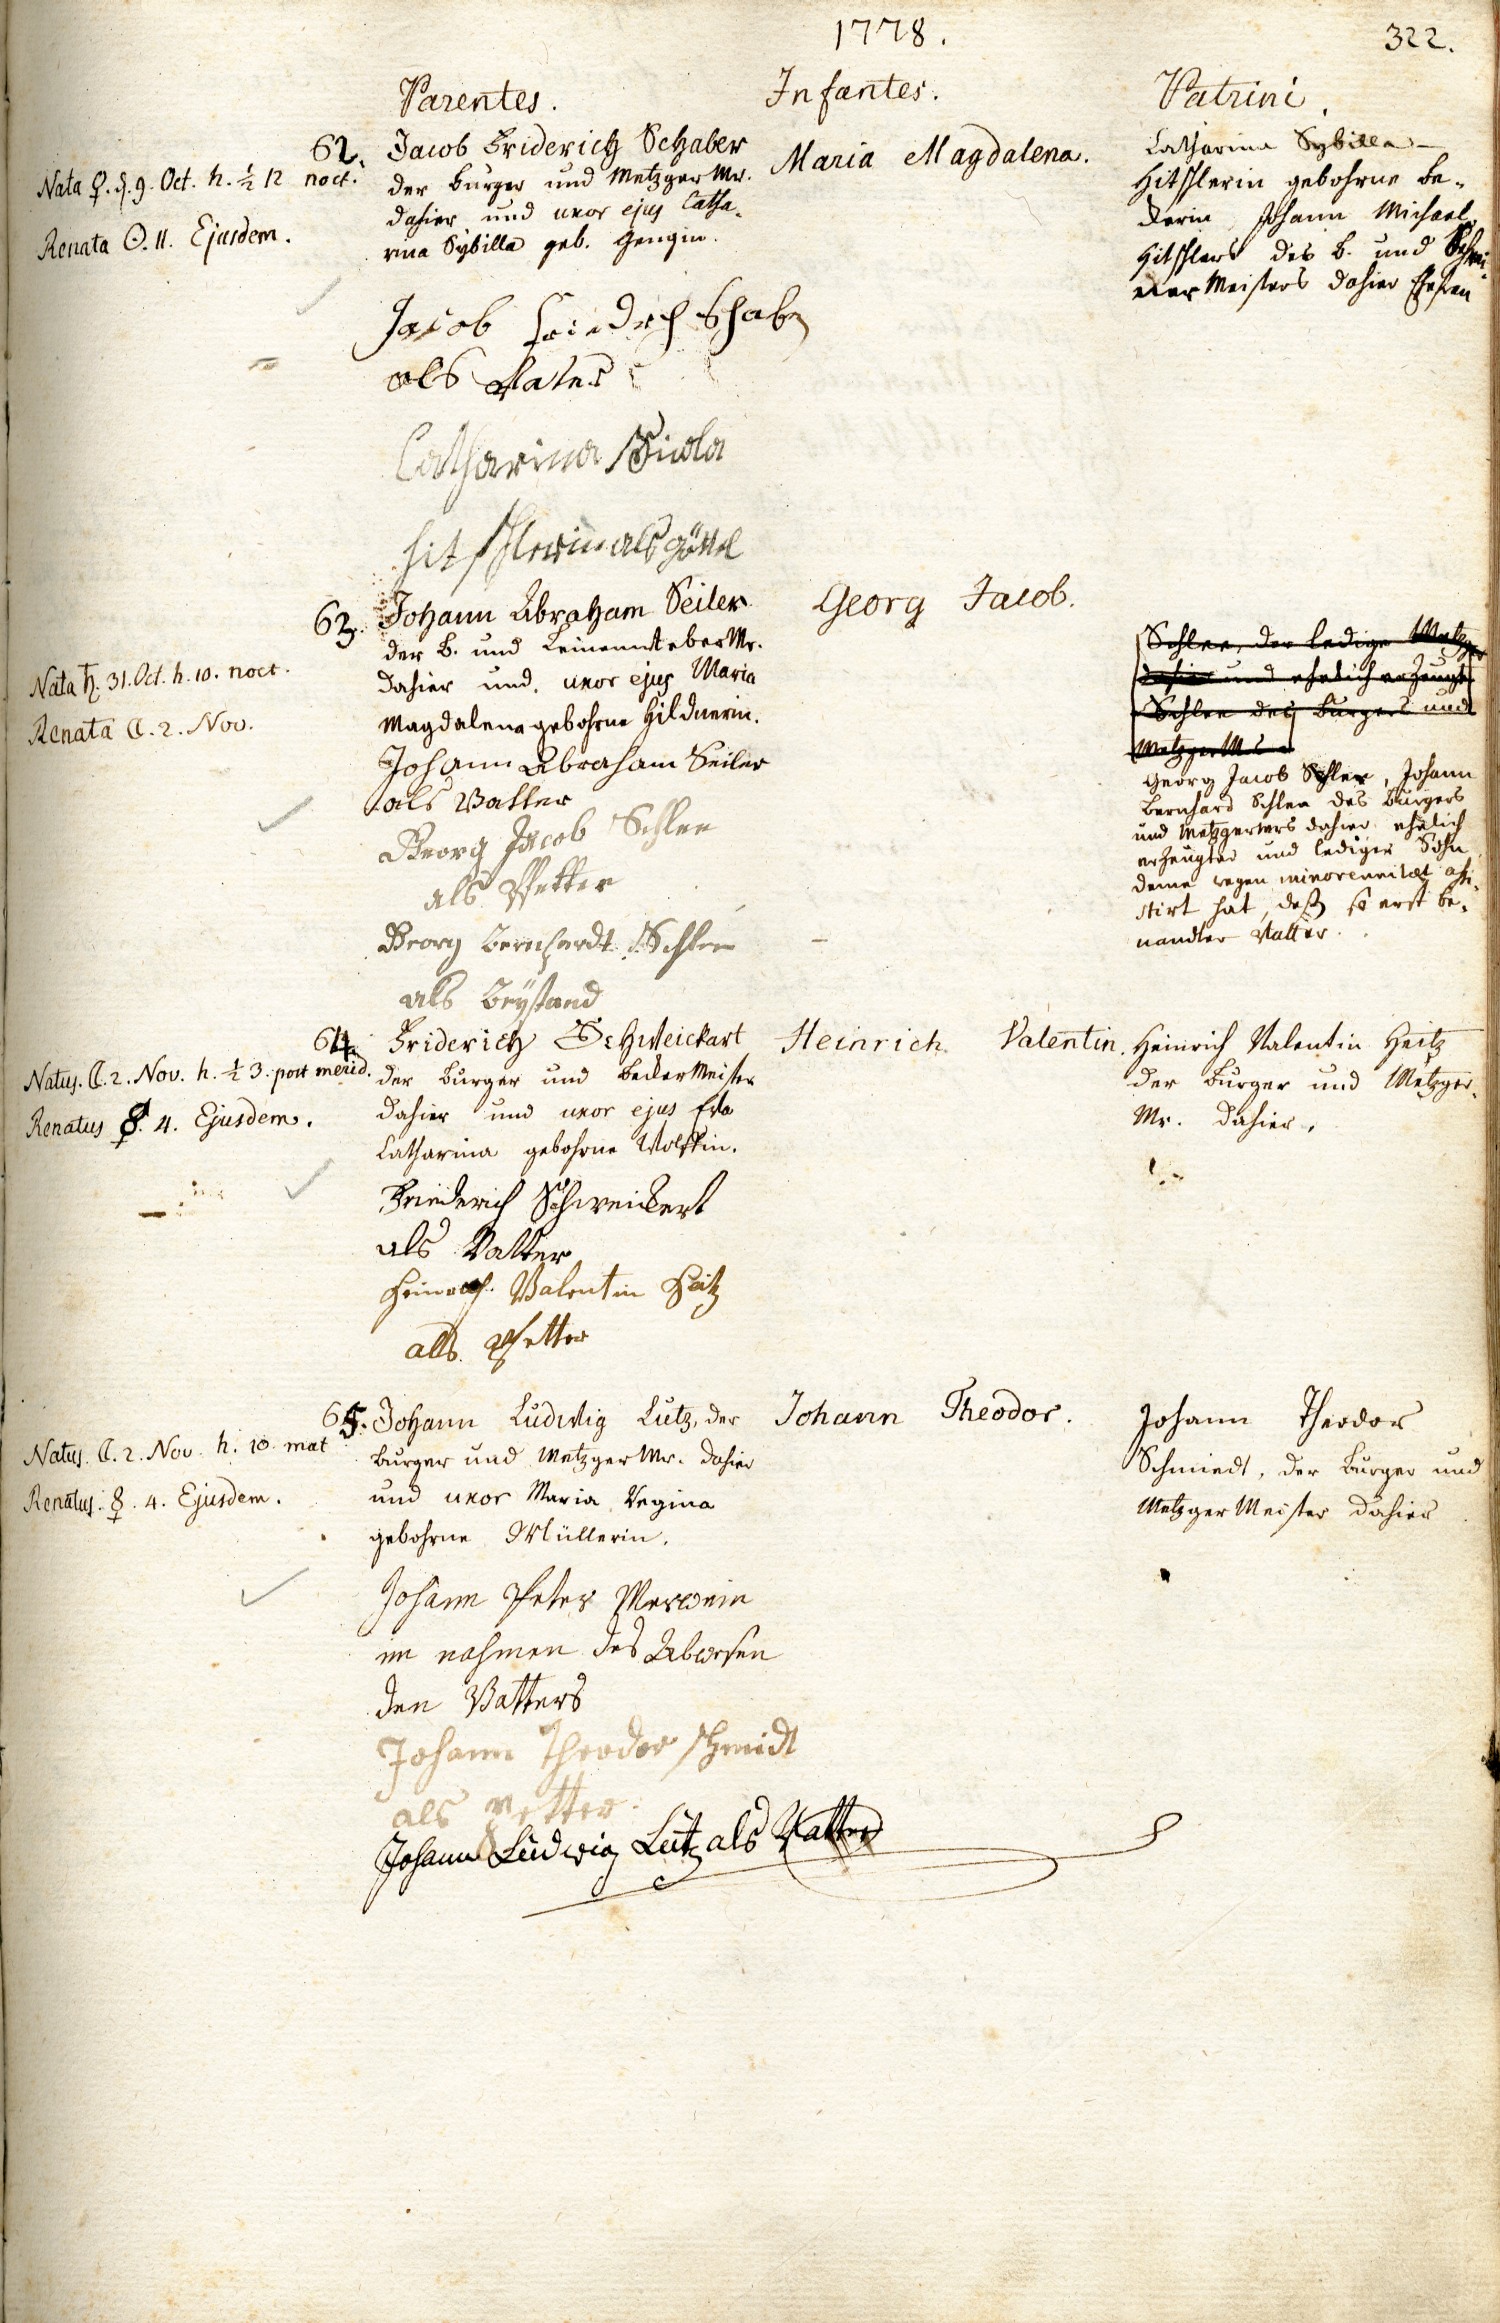 1778.
322.
Parentes.
Infantes.
Patrini.
62.
Nata ♀. d. 9. Oct. h. ½ 12 noct.
Renata ☉. 11. Ejusdem.
Jacob Friderich Schaber
der burger und Metzger Mr.
dahier und uxor ejus Catha-
rina Sybilla geb. Gengin.
Maria Magdalena.
Catharina Sybilla
Hitschlerin gebohrne be-
ckerin, Johann Michael
Hitschlers des b. und Schrei-
ner Meisters dahier Ehefrau
Jacob Friedrch Schaber
als Vater
Catharina
hitschlerin als göttel
63.
Nata ♄. 31. Oct. h. 10. noct.
Renata ☾. 2. Nov.
Johann Abraham Seiler
der b. und Leinenweber Mr.
dahier und uxor ejus Maria
Magdalena gebohrne Hildnerin.
Georg Jacob.
Schlee, der ledige Metzger
dahier und ehelich erzeugt
Schlee des burgers und
Metzger
Georg Jacob Schlee, Johann
Bernhard Schlee des burgers
und Metzgers dahier ehelich
erzeugter und lediger Sohn
deme wegen minorennitæt assi-
stirt hat, deß so erst be-
nandter Vatter.
Johann Abraham Seiler
als Vatter
Georg Jacob Schlee
als Pfetter
Georg Bernhardt Schlee
als beystand
64.
Natus. ☾. 2. Nov. h. ½ 3. post merid.
Renatus ☿. 4. Ejusdem.
Friderich Schweickart
der burger und becker Meister
dahier und uxor ejus Eva
Catharina gebohrne Wolffin.
Heinrich Valentin.
Heinrich Valentin Heitz
der burger und Metzger
Mr. dahier.
Friederich Schweickert
als Vatter
Heinrich Valentin Heitz
als Pfetter
65.
Natus. ☾. 2. Nov. h. 10. mat
Renatus. ☿. 4. Ejusdem.
Johann Ludwig Lutz, der
burger und Metzger Mr. dahier
und uxor Maria Regina
gebohrne Müllerin.
Johann Theodor.
Johann Theodor
Schmiedt, der burger und
Metzger Meister dahier
Johann Peter Merwein
im nahmen des Abwesen
den Vatters
Johann Theodor schmidt
als petter
Johann Ludwig Lutz als Vatter